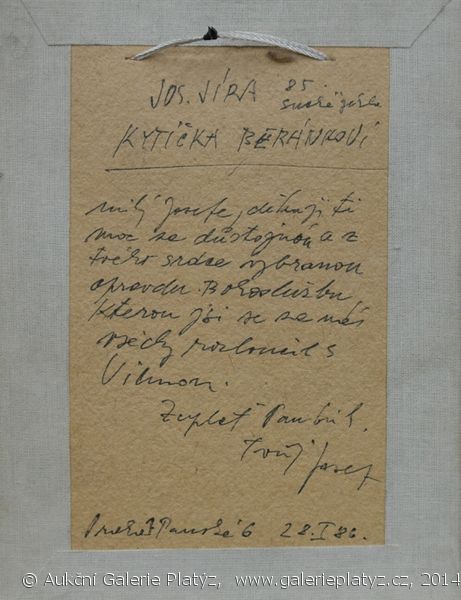 JOS. JÍRA 85
KYTIČKA BERÁNKOVI
milý Josefe, děkuji ti
moc za důstojnou a z
tvého srdce vybranou
opravdu Bohoslužbu,
kterou jsi se za nás
všechny rozloučil s
Vilmou.
Zaplať Pánbůh.
Tvůj Josef
Praha Panská 6 28.I 86.
© Aukční Galerie Platýz, www.galerieplatyz.cz, 2014